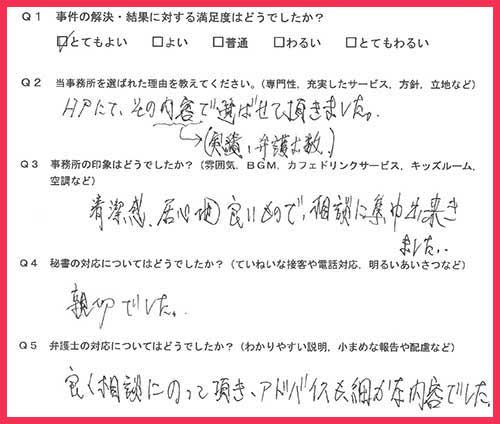 Q1 事件の解決・結果に対する満足度はどうでしたか？
☑とてもよい □よい □普通 □わるい □とてもわるい
Q2 当事務所を選ばれた理由を教えてください。（専門性，充実したサービス，方針，立地など）
HPにて、その内容で選ばせて頂きました。
→(実績、弁護士数)
Q3 事務所の印象はどうでしたか？（雰囲気，BGM，カフェドリンクサービス，キッズルーム，
空調など）
清潔感、居心地良いもので、相談に集中出来き
ました。
Q4 秘書の対応についてはどうでしたか？（ていねいな接客や電話対応，明るいあいさつなど）
親切でした。
Q5 弁護士の対応についてはどうでしたか？（わかりやすい説明，小まめな報告や配慮など）
良く相談にのって頂き、アドバイスも細かな内容でした。